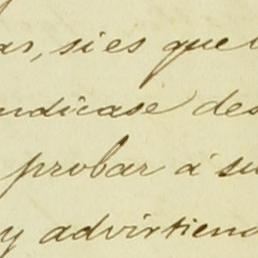 ar, si es que
ndicase des
probar á su
y advirtiend